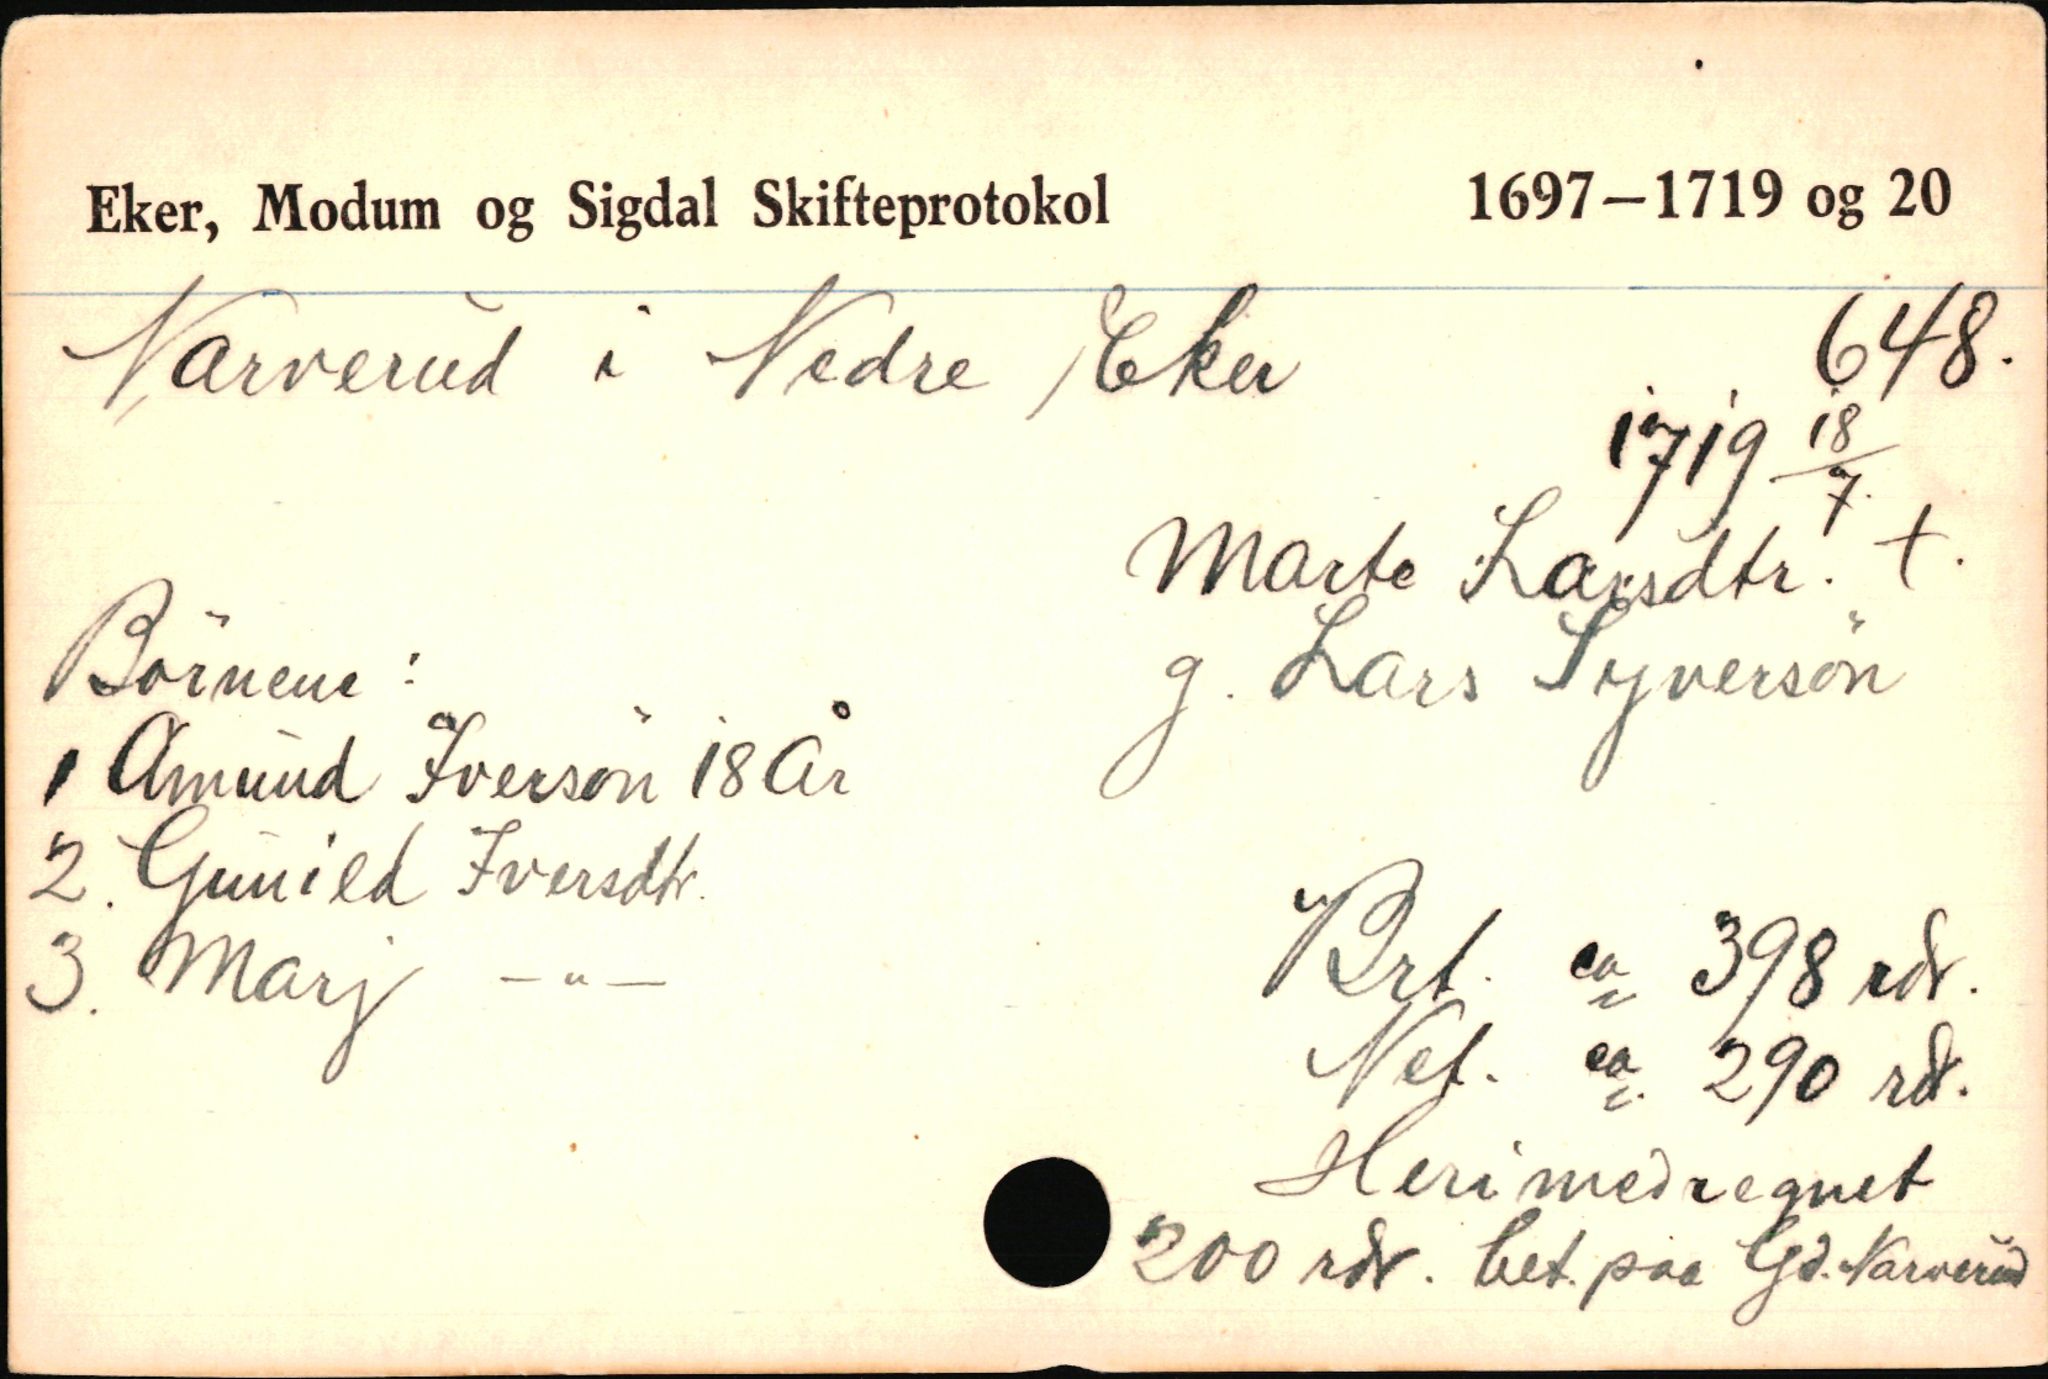 Eker, Modum og Sigdal Skifteprotokol 1697–1719 og 20
Narverud i Nedre Eker 648.
1719 18/7
Marte Larsdtr. +.
g. Lars Syversön
Börnene :
1 Amund Iversön 18 År
2. Gunild Iversdtr.
3. Marj —"—
Brt. ca 398 rdr.
Net. ca 290 rdr.
Heri medregnet
200 rdr. bet. paa Gd. Narverud